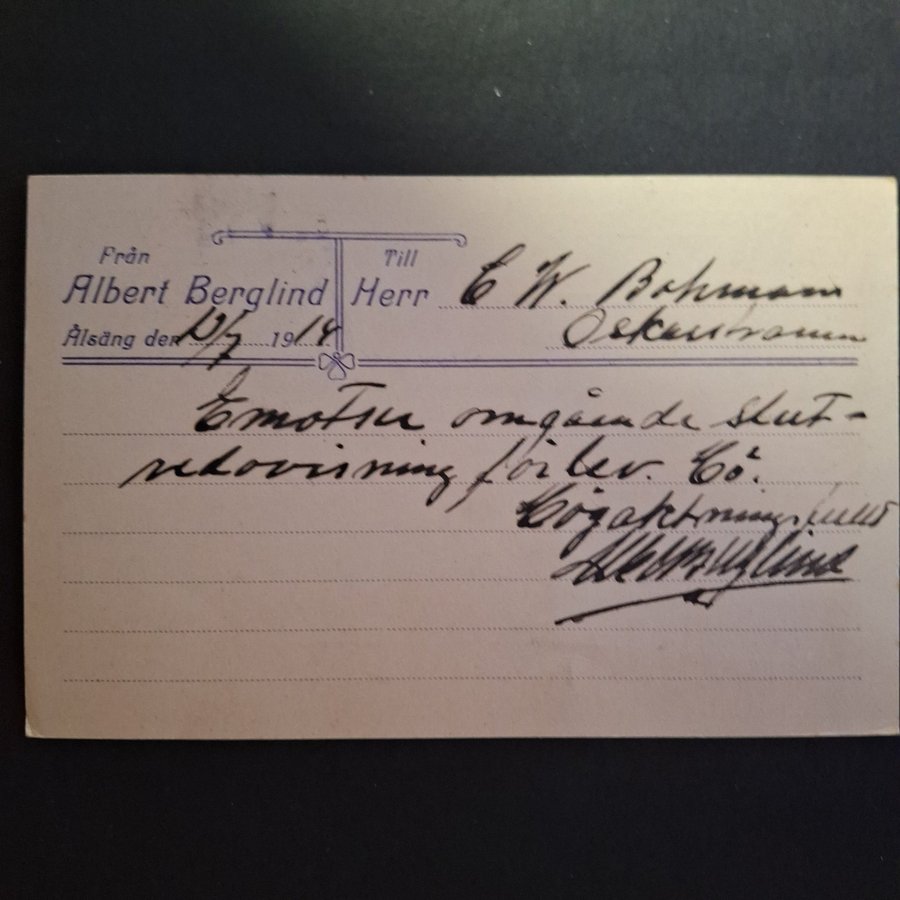 Från
Albert Berglind
Ålsäng den 12/7 1914
Till
Herr E W. Bohman
Oskarshamn
Emotser omgående slut-
redovisning för lev. Hö.
Högaktningsfullt
Alb Berglind